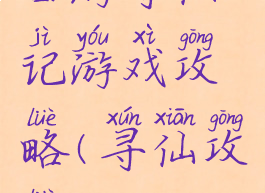 jì yóu xì gōng
记游戏攻
lüè xún xiān gōng
略(寻仙攻